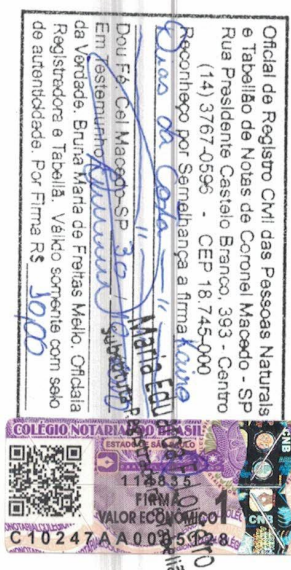 Oficial de Registro Civil das Pessoas Naturais
e Tabelião de Notas de Coronel Macedo - SP
Rua Presidente Castelo Branco, 393 - Centro
(14) 3767-0596 - CEP 18.745-000
Reconheço por Semelhança a firma
Dias da Costa
Dou Fé, Cel Macedo-SP 30
Em Testemunho
da Verdade. Bruna Maria de Freitas Mello. Oficiala
Registradora e Tabeliã. Válido somente com selo
de autenticidade. Por Firma R$ 10,00
Maria Edu
Substituta
COLÉGIO NOTARIAL DO BRASIL
ESTADO DE SÃO PAULO
114835
FIRMA 1
VALOR ECONÔMICO
CNB
CNB